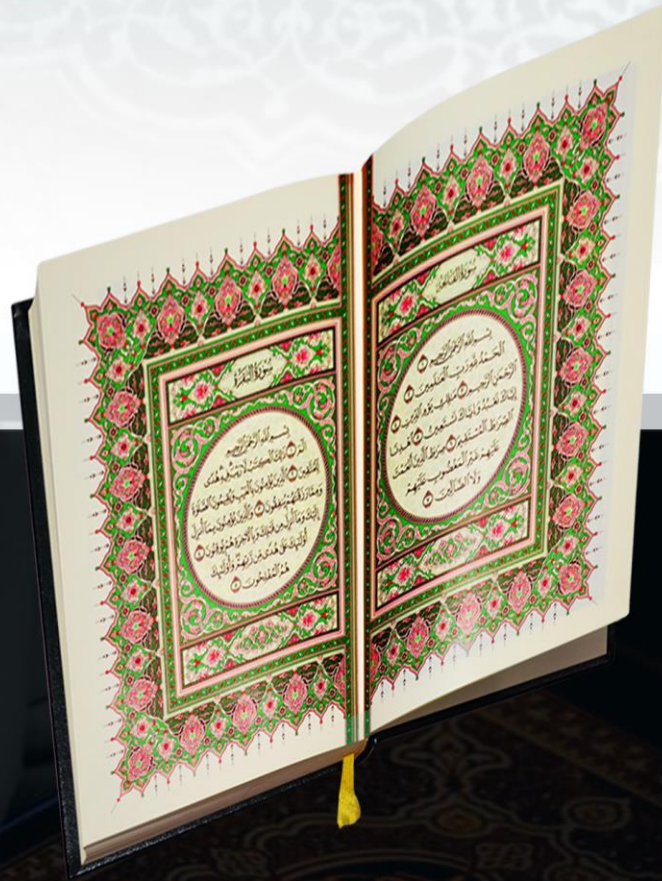 سُورَةُ الفَاتِحَةِ
بِسْمِ اللَّهِ الرَّحْمَٰنِ الرَّحِيمِ ١
الْحَمْدُ لِلَّهِ رَبِّ الْعَٰلَمِينَ ٢
الرَّحْمَٰنِ الرَّحِيمِ ٣ مَٰلِكِ يَوْمِ الدِّينِ ٤
إِيَّاكَ نَعْبُدُ وَإِيَّاكَ نَسْتَعِينُ ٥ اهْدِنَا
الصِّرَٰطَ الْمُسْتَقِيمَ ٦ صِرَٰطَ الَّذِينَ أَنْعَمْتَ
عَلَيْهِمْ غَيْرِ الْمَغْضُوبِ عَلَيْهِمْ
وَلَا الضَّالِّينَ ٧
سُورَةُ البَقَرَةِ
بِسْمِ اللَّهِ الرَّحْمَٰنِ الرَّحِيمِ
الم ١ ذَٰلِكَ الْكِتَٰبُ لَا رَيْبَ فِيهِ هُدًى
لِّلْمُتَّقِينَ ٢ الَّذِينَ يُؤْمِنُونَ بِالْغَيْبِ وَيُقِيمُونَ الصَّلَوٰةَ
وَمِمَّا رَزَقْنَٰهُمْ يُنفِقُونَ ٣ وَالَّذِينَ يُؤْمِنُونَ بِمَا أُنزِلَ
إِلَيْكَ وَمَا أُنزِلَ مِن قَبْلِكَ وَبِالْآخِرَةِ هُمْ يُوقِنُونَ ٤
أُولَٰئِكَ عَلَىٰ هُدًى مِّن رَّبِّهِمْ وَأُولَٰئِكَ
هُمُ الْمُفْلِحُونَ ٥